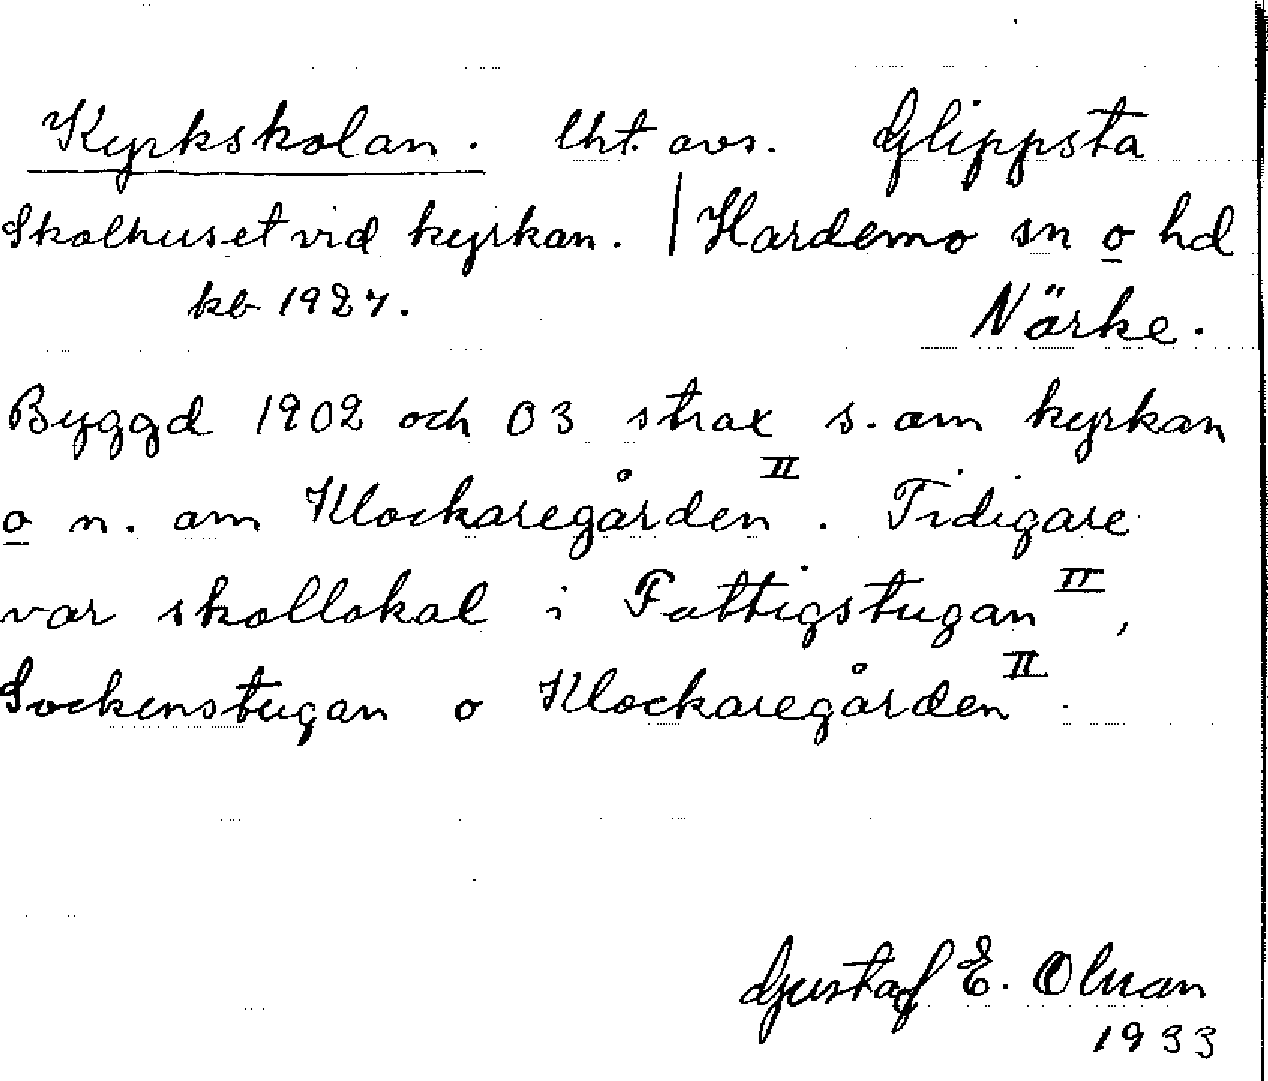 Kyrkskolan. lht. avs. Glippsta
Skolhuset vid kyrkan. | Hardemo sn o hd
kb 1927. Närke.
Byggd 1902 och 03 strax s. om kyrkan
o n. om Klockaregården II. Tidigare
var skollokal i Fattigstugan II,
Sockenstugan o Klockaregården II.
Gustaf E. Olsson
1933